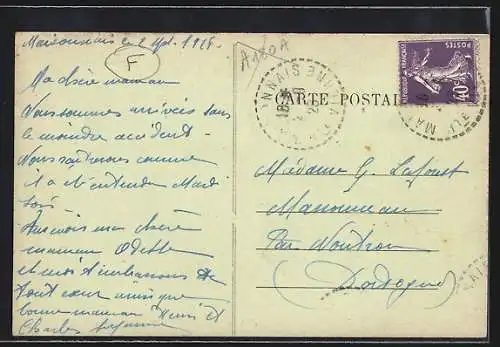 Maisonnais le 2 Sept. 1928
F
A120A
Ma chère maman
Nous sommes arrivés sans
le moindre accident.
Nous rentrerons comme
il a été entendu Mardi
soir
Au revoir ma chère
maman Odette
et moi t'embrassons de
tout cœur ainsi que
bonne maman Henri et
Charles
CARTE POSTALE
RÉPUBLIQUE FRANÇAISE
POSTES
40c
Madame G.
Par Nontron
(Dordogne)